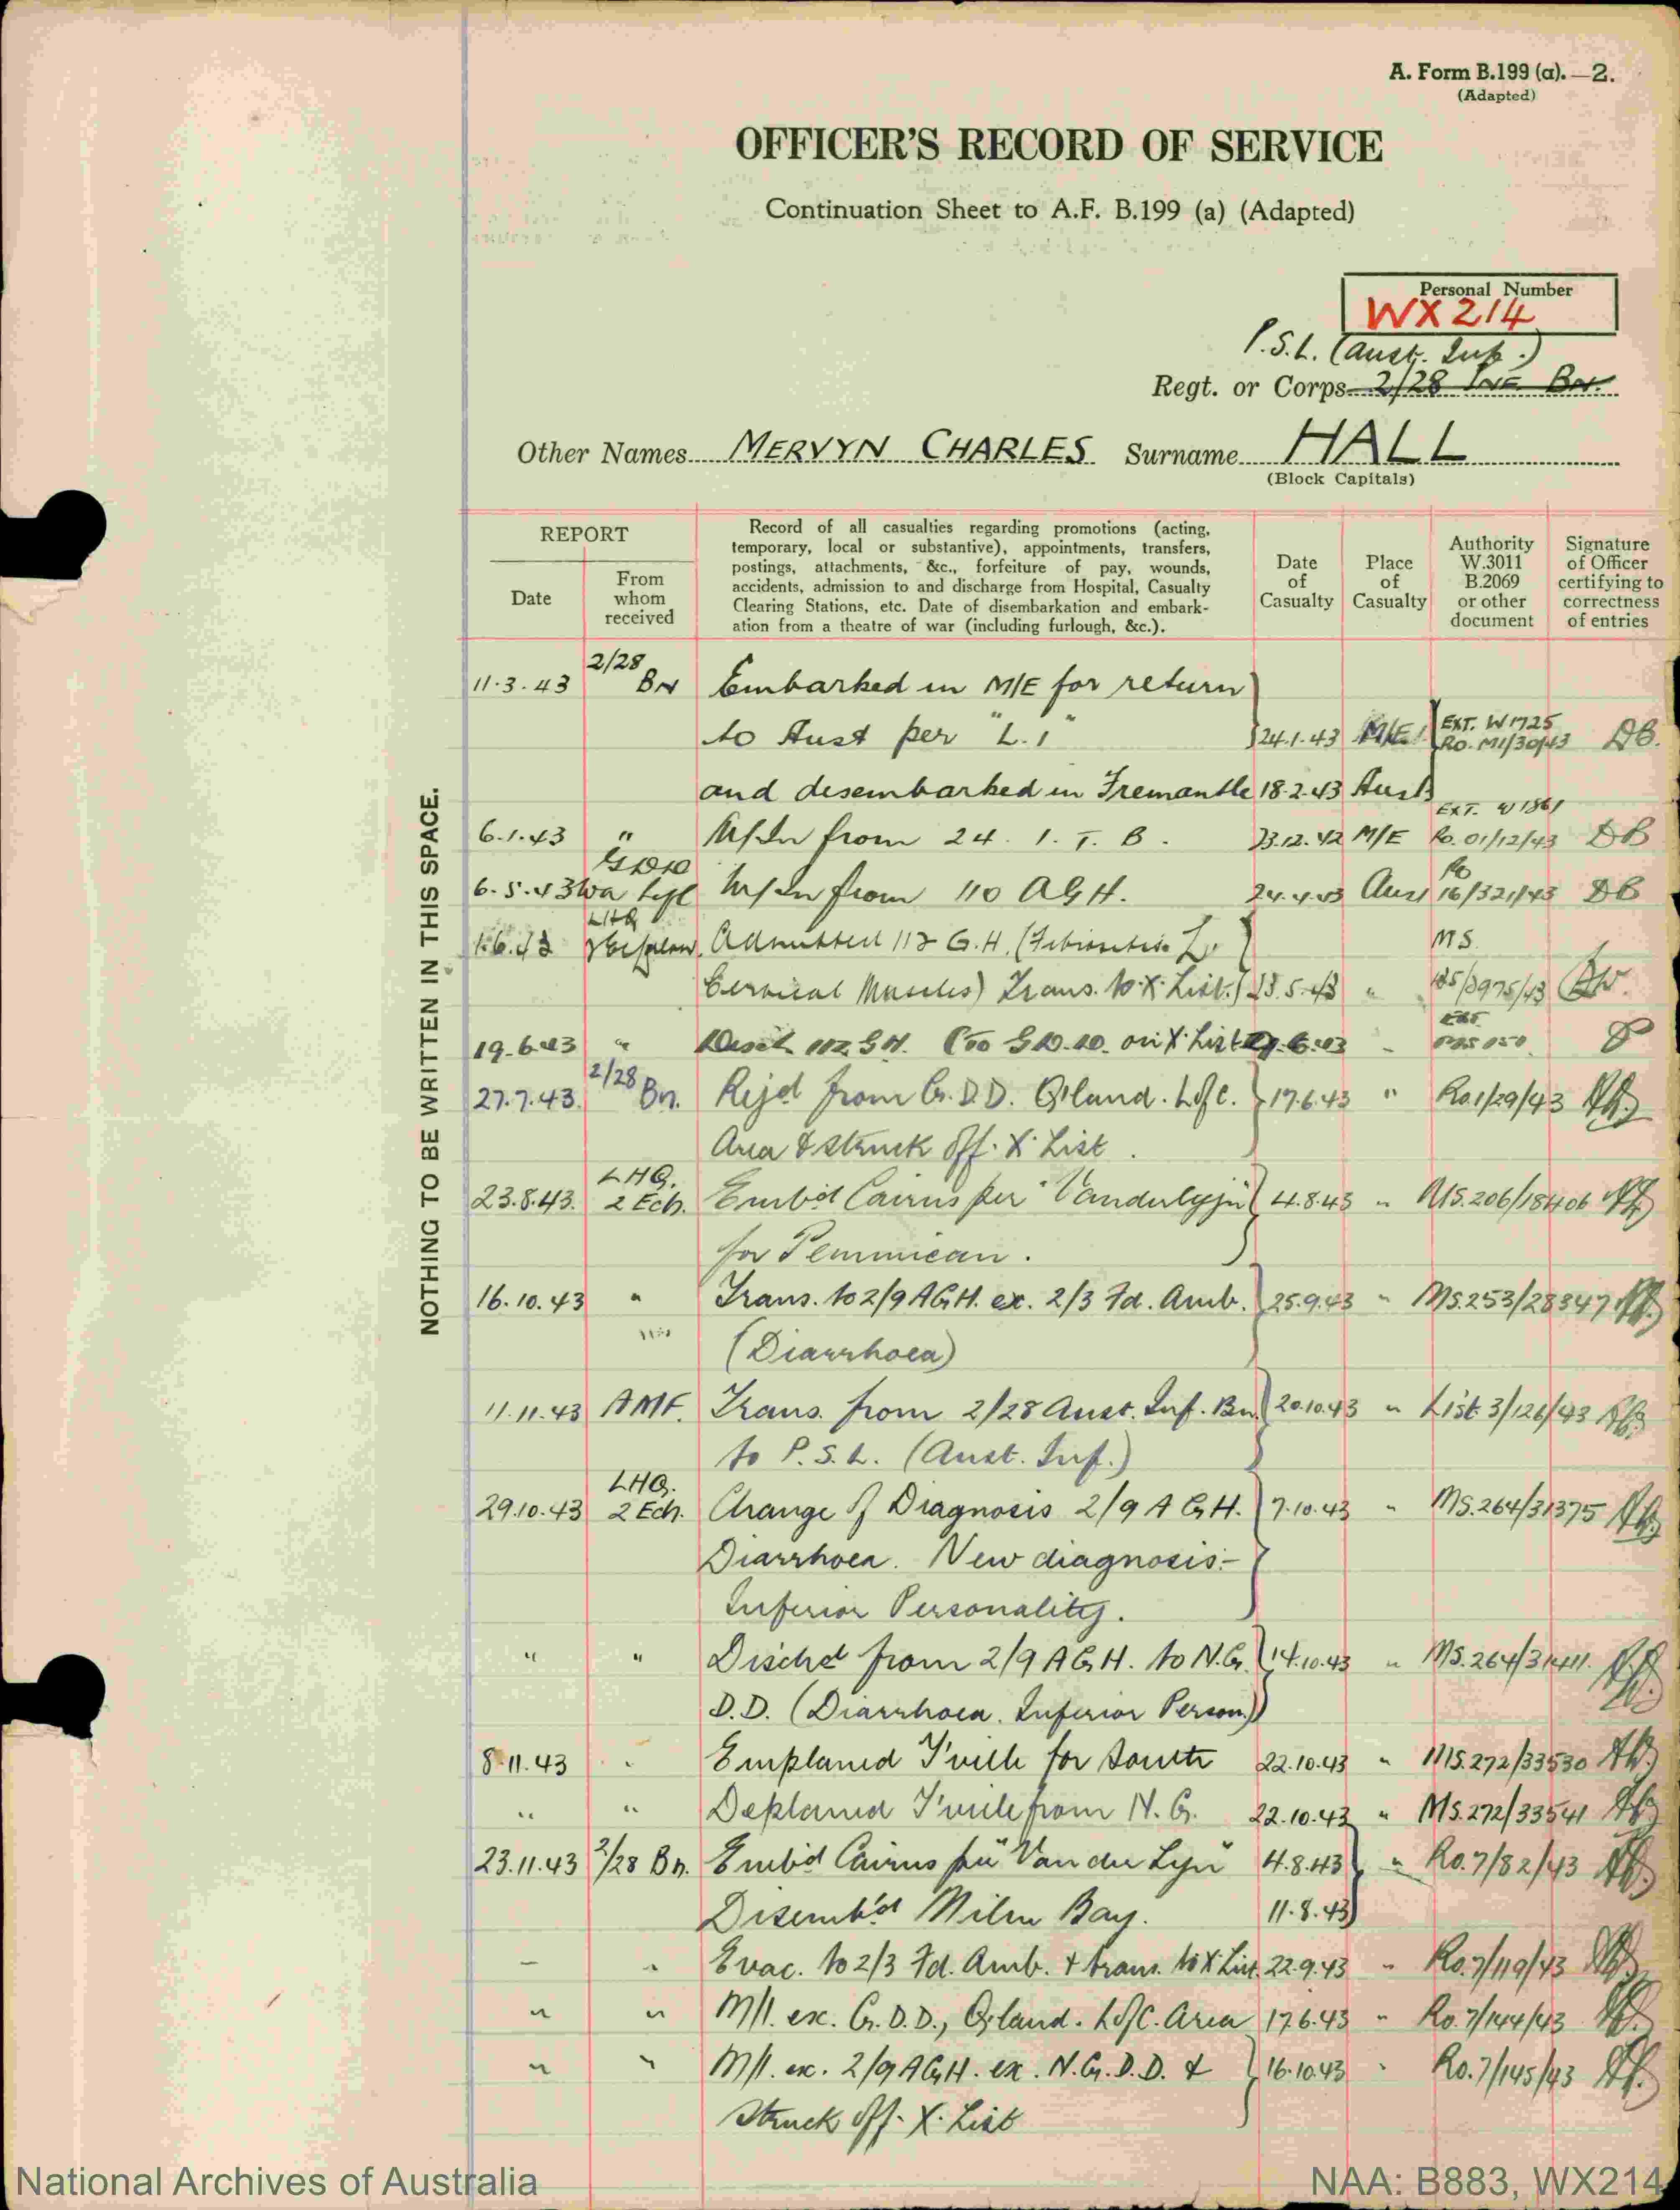 A. Form B.199 (a).—2.
(Adapted)
OFFICER'S RECORD OF SERVICE
Continuation Sheet to A.F. B.199 (a) (Adapted)
Personal Number
WX 214
P.S.L. (Aust. Inf.)
Regt. or Corps 2/28 INF. BN.
Other Names MERVYN CHARLES Surname HALL
(Block Capitals)
REPORT
Date
From whom received
Record of all casualties regarding promotions (acting,
temporary, local or substantive), appointments, transfers,
postings, attachments, &c., forfeiture of pay, wounds,
accidents, admission to and discharge from Hospital, Casualty
Clearing Stations, etc. Date of disembarkation and embark-
ation from a theatre of war (including furlough, &c.).
Date of Casualty
Place of Casualty
Authority W.3011 B.2069 or other document
Signature of Officer certifying to correctness of entries
NOTHING TO BE WRITTEN IN THIS SPACE.
11.3.43 2/28 BN Embarked in M/E for return
to Aust per "L.1" 24.1.43 M/E EXT. W1725 RO. M1/30/43 DB.
and desembarked in Fremantle 18.2.43 Aust EXT. W1861
6.1.43 " from 24. I. T. B. 23.12.42 M/E Ro. 01/12/43 DB
6.5.43 from 110 AGH. 24.4.43 Aust Ro 16/321/43 DB
1.6.43 LHQ Admitted 112 G.H. (
Cervical Muscles) Trans. to X List. 23.5.43 " MS
19.6.43 " Disch 112 G.H. to G.D.D. on X List 6.43
27.7.43 2/28 Bn. Rejd from G.D.D. Q'land. L of C. 17.6.43 " Ro.1/29/43
Area & struck off. X List.
23.8.43. LHQ. 2 Ech. Emb'd Cairns per "Vanderlyjn" 4.8.43 " MS.206/18406
for Pemmican.
16.10.43 " Trans. to 2/9 AGH. ex. 2/3 Fd. Amb. 25.9.43 " MS.253/28347
(Diarrhoea)
11.11.43 AMF. Trans. from 2/28 Aust. Inf. Bn. 20.10.43 " List 3/126/43
to P.S.L. (Aust. Inf.)
29.10.43 LHQ. 2 Ech. Change of Diagnosis 2/9 AGH. 7.10.43 " MS.264/31375
Diarrhoea. New diagnosis:-
Inferior Personality.
" " Dischd from 2/9 AGH. to N.G. 14.10.43 " MS.264/31411.
D.D. (Diarrhoea. Inferior Person.)
8.11.43 " Emplaned T'ville for South 22.10.43 " MS.272/33530
" " Deplaned T'ville from N.G. 22.10.43 " MS.272/33541
23.11.43 2/28 Bn. Emb'd Cairns per "Van der Lyn" 4.8.43 " Ro.7/82/43
Disemb'd Milne Bay. 11.8.43
– " Evac. to 2/3 Fd. Amb. & trans. to X List. 22.9.43 " Ro.7/119/43
" " M/I. ex. G.D.D., Q'land. L of C. Area 17.6.43 " Ro.7/144/43
" " M/I. ex. 2/9 AGH. ex. N.G.D.D. & 16.10.43 " Ro.7/145/43
Struck off. X. List
National Archives of Australia
NAA: B883, WX214